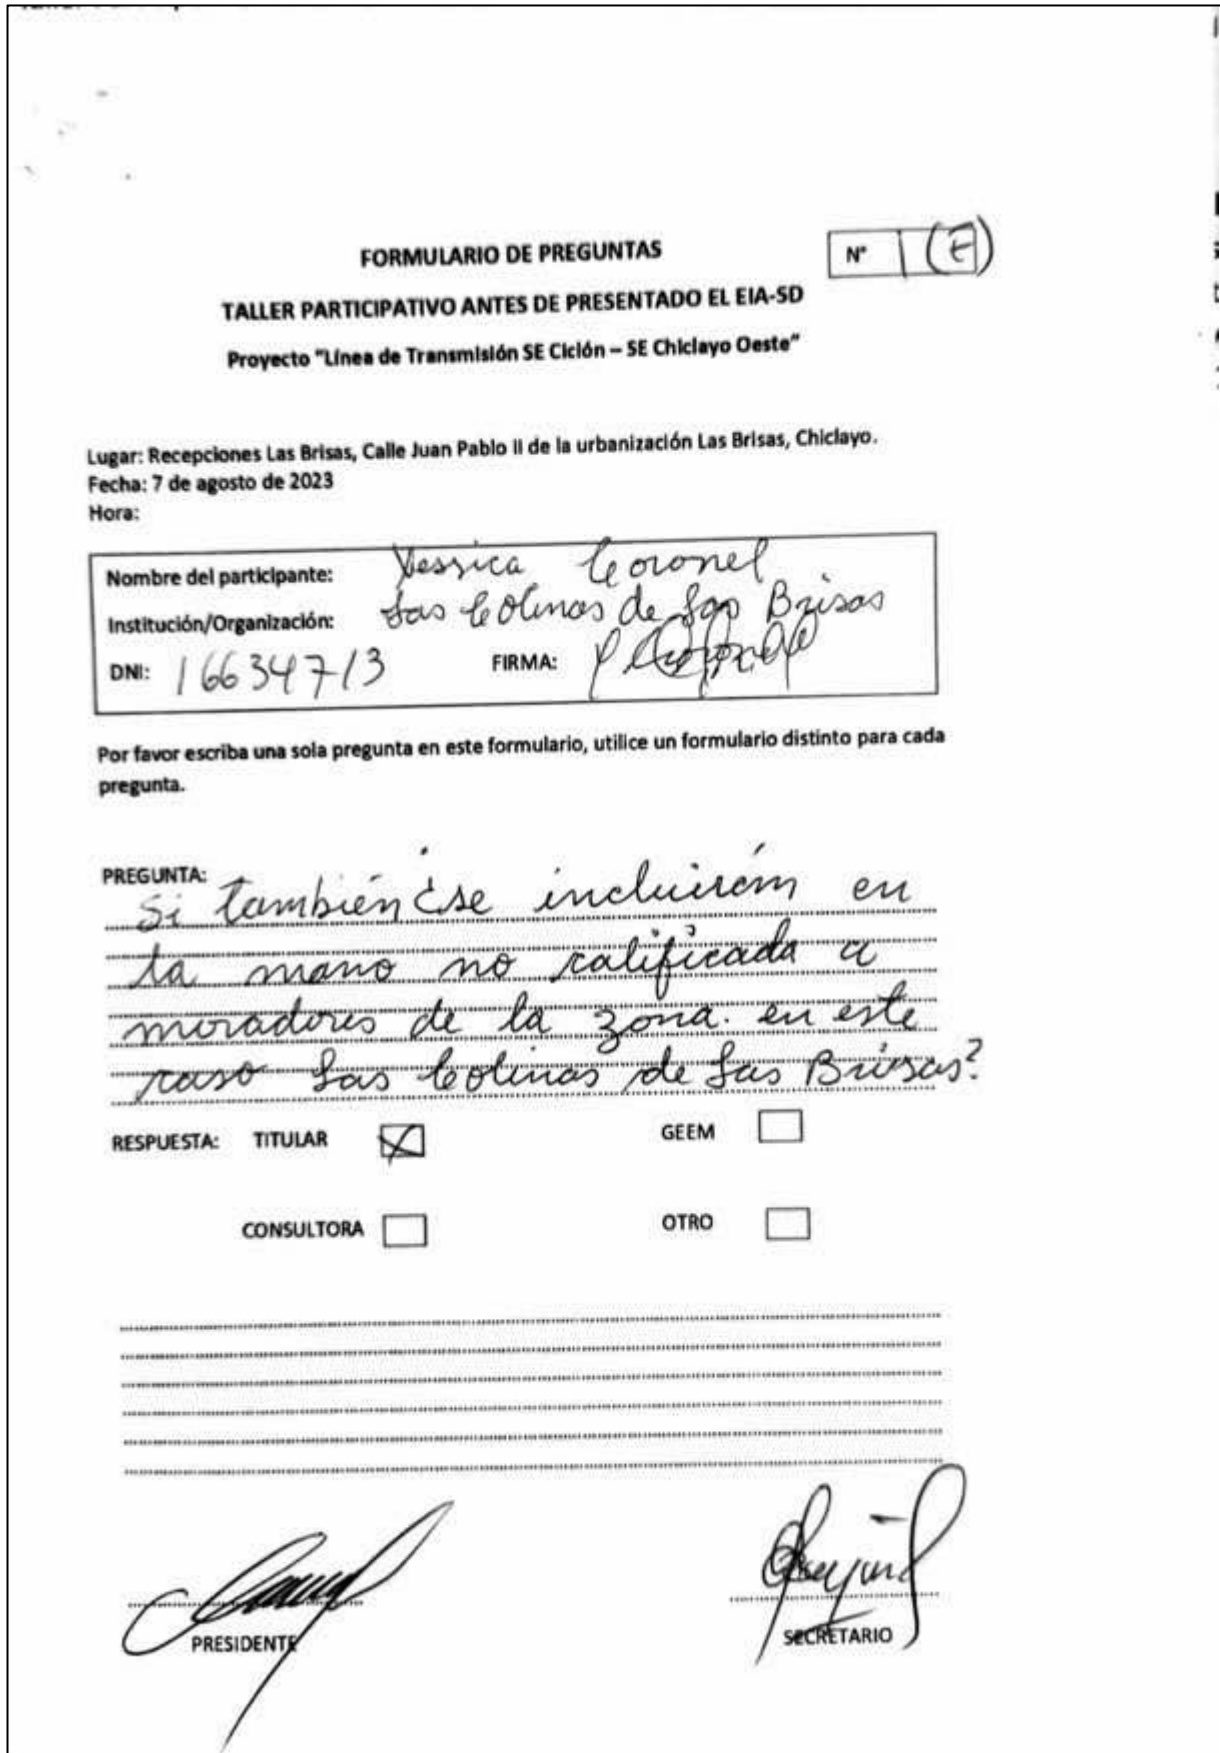 FORMULARIO DE PREGUNTAS
N° (7)
TALLER PARTICIPATIVO ANTES DE PRESENTADO EL EIA-SD
Proyecto "Línea de Transmisión SE Ciclón – SE Chiclayo Oeste"
Lugar: Recepciones Las Brisas, Calle Juan Pablo II de la urbanización Las Brisas, Chiclayo.
Fecha: 7 de agosto de 2023
Hora:
Nombre del participante: Yessica Coronel
Institución/Organización: Las Colinas de Las Brisas
DNI: 16634713 FIRMA:
Por favor escriba una sola pregunta en este formulario, utilice un formulario distinto para cada
pregunta.
PREGUNTA:
Si también ¿se incluirám en
la mano no calificada a
moradores de la zona. en este
caso Las Colinas de Las Brisas?
RESPUESTA: TITULAR X GEEM
CONSULTORA OTRO
PRESIDENTE SECRETARIO